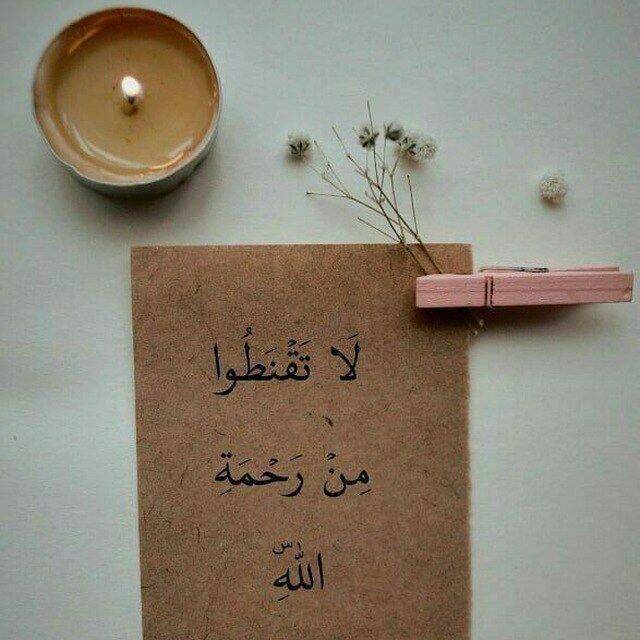 لَا تَقْنَطُوا
مِنْ رَحْمَةِ
اللّٰهِ